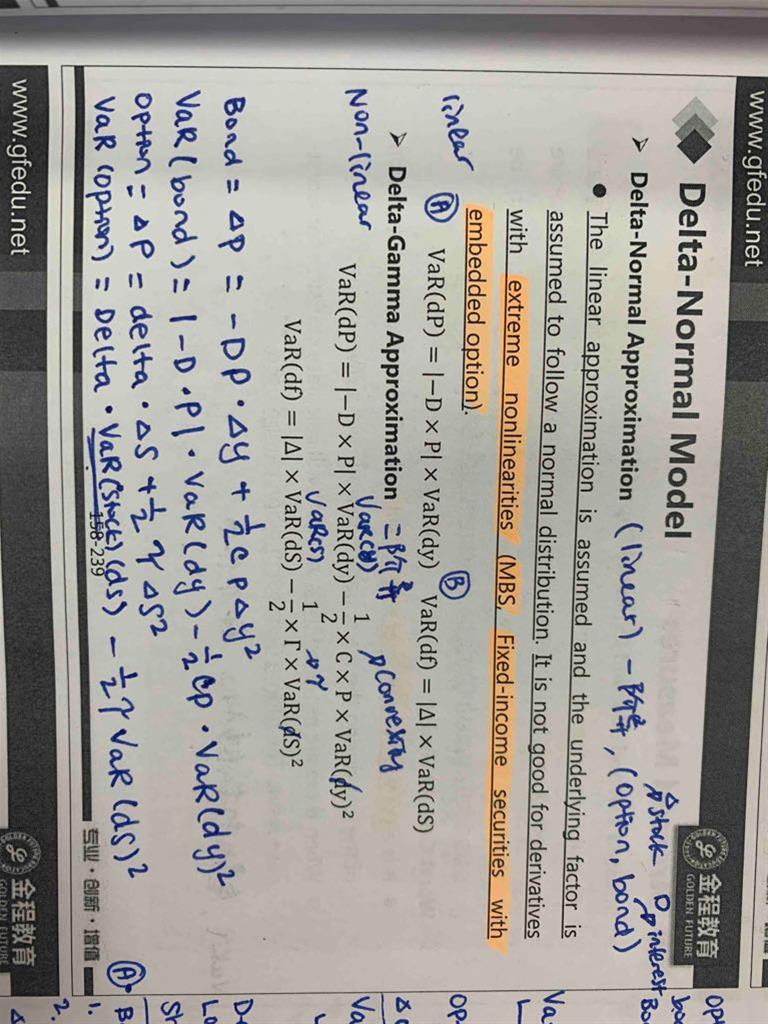 www.gfedu.net
Delta-Normal Model
金程教育
GOLDEN FUTURE
Δ stock D→interest
➢ Delta-Normal Approximation (linear) - 一阶, (option, bond)
● The linear approximation is assumed and the underlying factor is
assumed to follow a normal distribution. It is not good for derivatives
with extreme nonlinearities (MBS, Fixed-income securities with
embedded option).
linear Ⓐ VaR(dP) = |−D × P| × VaR(dy) Ⓑ VaR(df) = |Δ| × VaR(dS)
➢ Delta-Gamma Approximation = 二阶
Non-linear
Convexity
VaR(dP) = |−D × P| × VaR(dy) − 1/2 × C × P × VaR(dy)²
γ
VaR(df) = |Δ| × VaR(dS) − 1/2 × Γ × VaR(dS)²
Bond = ΔP = -DP · Δy + ½ C P Δy²
VaR (bond) = |-D·P| · VaR(dy) - ½ CP · VaR(dy)²
option = ΔP = delta · ΔS + ½ γ ΔS²
VaR (option) = Delta · VaR(stock) (ds) - ½ γ VaR (ds)²
158-239
专业·创新·增值
www.gfedu.net
金程教育
GOLDEN FUTURE